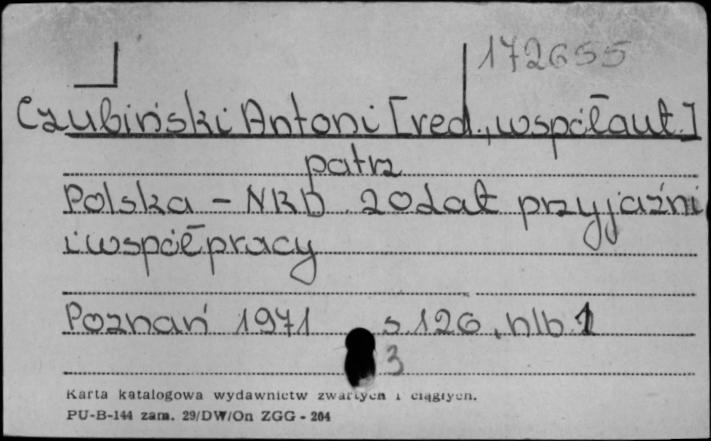 172655
Czubiński Antoni [red., współaut.]
patrz
Polska - NRD 20 lat przyjaźni
i współpracy
Poznań 1971 s. 126, nlb. 1
3
Karta katalogowa wydawnictw zwartych i ciągłych.
PU-B-144 zam. 29/DW/On ZGG - 264